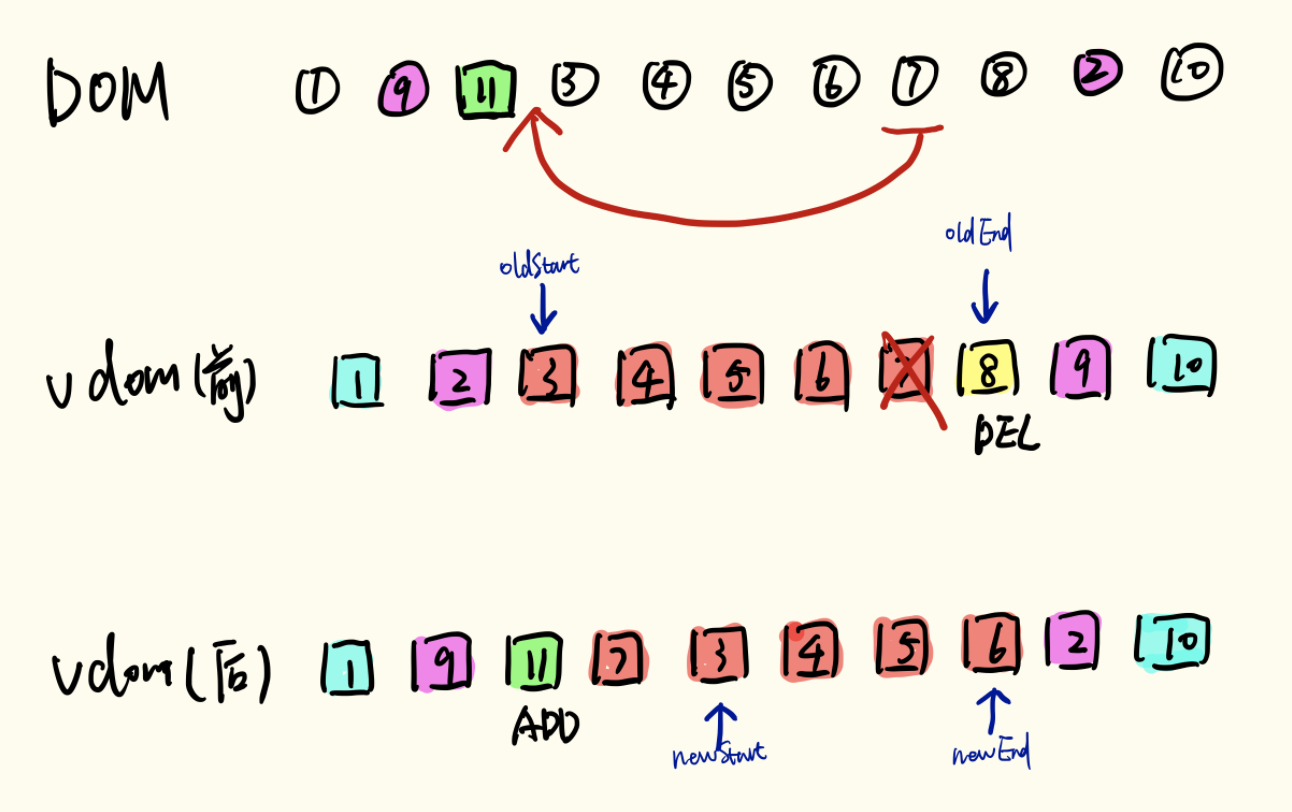 DOM ① ⑨ 11 ③ ④ ⑤ ⑥ ⑦ ⑧ ② ⑩
oldStart oldEnd
vdom(前) 1 2 3 4 5 6 7 8 9 10
DEL
vdom(后) 1 9 11 7 3 4 5 6 2 10
ADD newStart newEnd